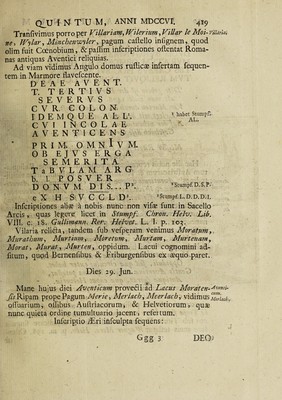 QUINTUM, ANNI MDCCVI. 429
Transivimus porro per Villariam, Wilerium, Villar le Moi-
ne, Wylar, Münchenwyler, pagum castello insignem, quod
olim fuit Cœnobium, & passim inscriptiones ostentat Roma-
nas antiquas Aventici reliquias.
Ad viam vidimus Angulo domus rusticæ insertam sequen-
tem in Marmore flavescente.
DEAE AVENT.
T. TERTIVS
SEVERVS
CVR COLON.
IDEMQUE ALL.
habet Stumpff.
CVI INCOLAE
AVENTICENS
PRIM. OMNIVM.
OB EJVS ERGA
SEMERITA
TABVLAM ARG
b. I POSVER
DONVM DIS...P.
Stumpf. D. S. P.
EX H SVCCLD.
Stumpf. L. D. D. D. I.
Inscriptiones aliæ à nobis nunc non visæ sunt in Sacello
Arcis, quas legere licet in Stumpf. Chron. Helv. Lib.
VIII. c. 18. Guillimann. Rer. Helvet. L. I. p. 103.
Vilaria relicta, tandem sub vesperam venimus Moratum,
Morathum, Murtium, Moretum, Murtam, Murtenam,
Morat, Murat, Murten, oppidum. Lacui cognomini ad-
situm, quod Bernensibus & Friburgensibus ex æquo paret.
Dies 29. Jun.
Mane hujus diei Aventicum provecti ad Lacus Moraten-
sis Ripam prope Pagum Merie, Merlach, Meerlach, vidimus
Merlach.
ossuarium, ossibus Austriacorum, & Helvetiorum, quæ
nunc quieta ordine tumultuario jacent, refertum.
Inscriptio Æri insculpta sequens:
Ggg 3 DEO